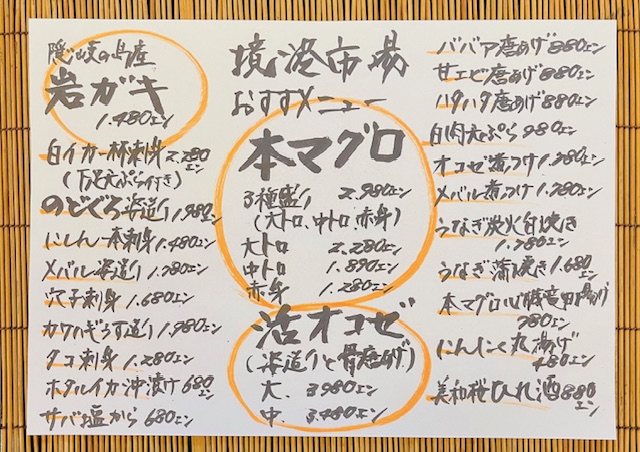 境港市場
おすすメニュー
隠岐の島産
岩ガキ
1.480エン
白イカ一杯刺身 2.280エン
(下足天ぷら付き)
のどぐろ姿造り 1.980エン
にしん一本刺身 1.480エン
メバル姿造り 1.780エン
穴子刺身 1.680エン
カワハギうす造り 1.980エン
タコ刺身 1.280エン
ホタルイカ沖漬け 680エン
サバ塩から 680エン
本マグロ
3種盛り 2.980エン
(大トロ、中トロ、赤身)
大トロ 2.280エン
中トロ 1.890エン
赤身 1.280エン
活オコゼ
(姿造りと骨唐あげ)
大. 3980エン
中. 3.480エン
ババア唐あげ 880エン
甘エビ唐あげ 880エン
ハタハタ唐あげ 880エン
白肉天ぷら 980エン
オコゼ煮つけ
メバル煮つけ 1.780エン
うなぎ炭火白焼き
1.780エン
うなぎ蒲焼き 1.680エン
本マグロ心臓竜田揚げ
780エン
にんにく丸揚げ
480エン
美和桜ひれ酒 880エン